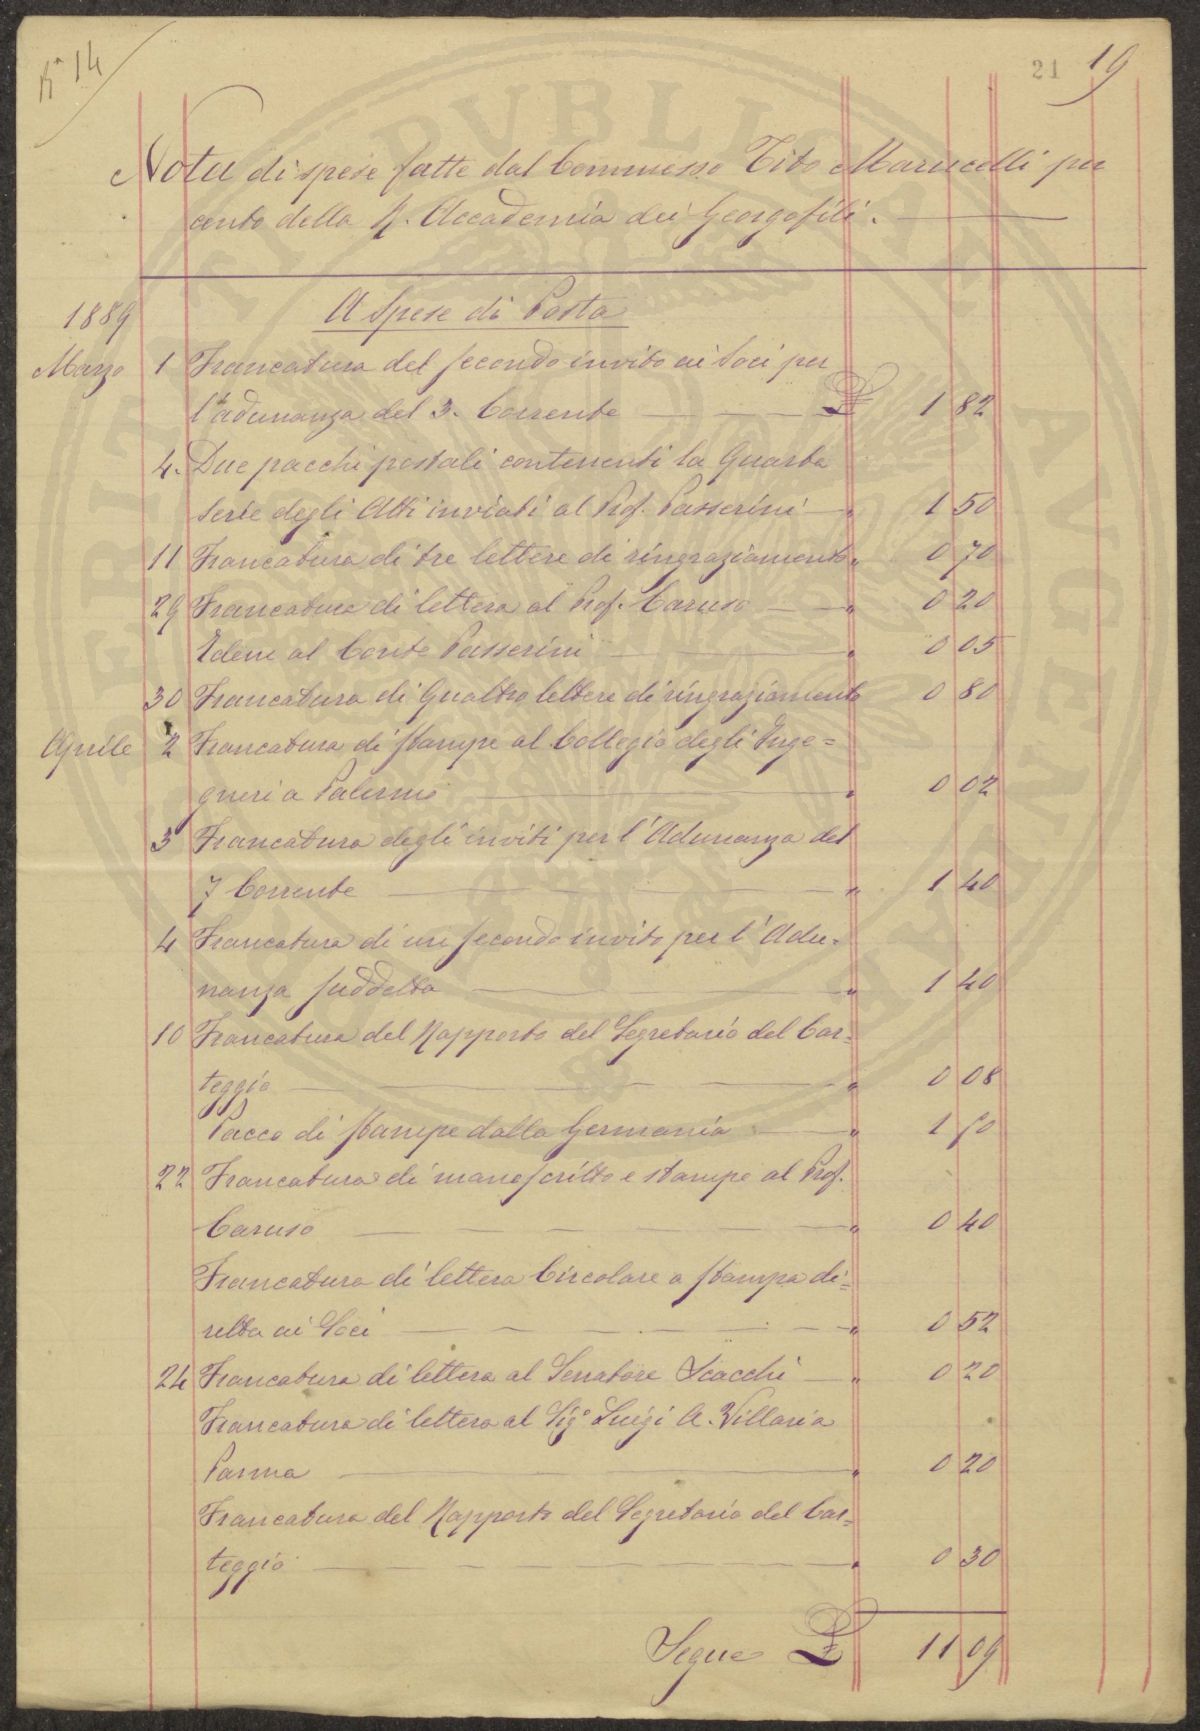 N° 14
21 19
Nota di spese fatte dal Commesso Tito Marucelli per
conto della R. Accademia dei Georgofili.
PVBLICAE
1889
A Spese di Posta
Marzo 1 Francatura del secondo invito ai Soci per
l'adunanza del 3. Corrente £ 1 82
4. Due pacchi postali contenenti la Quarta
Serie degli Atti inviati al Prof. Passerini " 1 50
11 Francatura di tre lettere di ringraziamento " 0 70
29 Francatura di lettera al Prof. Caruso " 0 20
Idem al Conte Passerini " 0 05
30 Francatura di Quattro lettere di ringraziamento 0 80
Aprile 2 Francatura di stampe al Collegio degli Inge=
gneri a Palermo " 0 02
3 Francatura degli inviti per l'Adunanza del
7 Corrente " 1 40
4 Francatura di un secondo invito per l'Adu=
nanza suddetta " 1 40
10 Francatura del Rapporto del Segretario del Car=
teggio " 0 08
Pacco di stampe dalla Germania " 1 50
22 Francatura di manoscritto e stampe al Prof.
Caruso " 0 40
Francatura di lettera Circolare a stampa di=
retta ai Soci " 0 52
24 Francatura di lettera al Senatore Scacchi " 0 20
Francatura di lettera al Sig.r Luigi A. Villari a
Parma " 0 20
Francatura del Rapporto del Segretario del Car=
teggio " 0 30
Segue £ 11 09